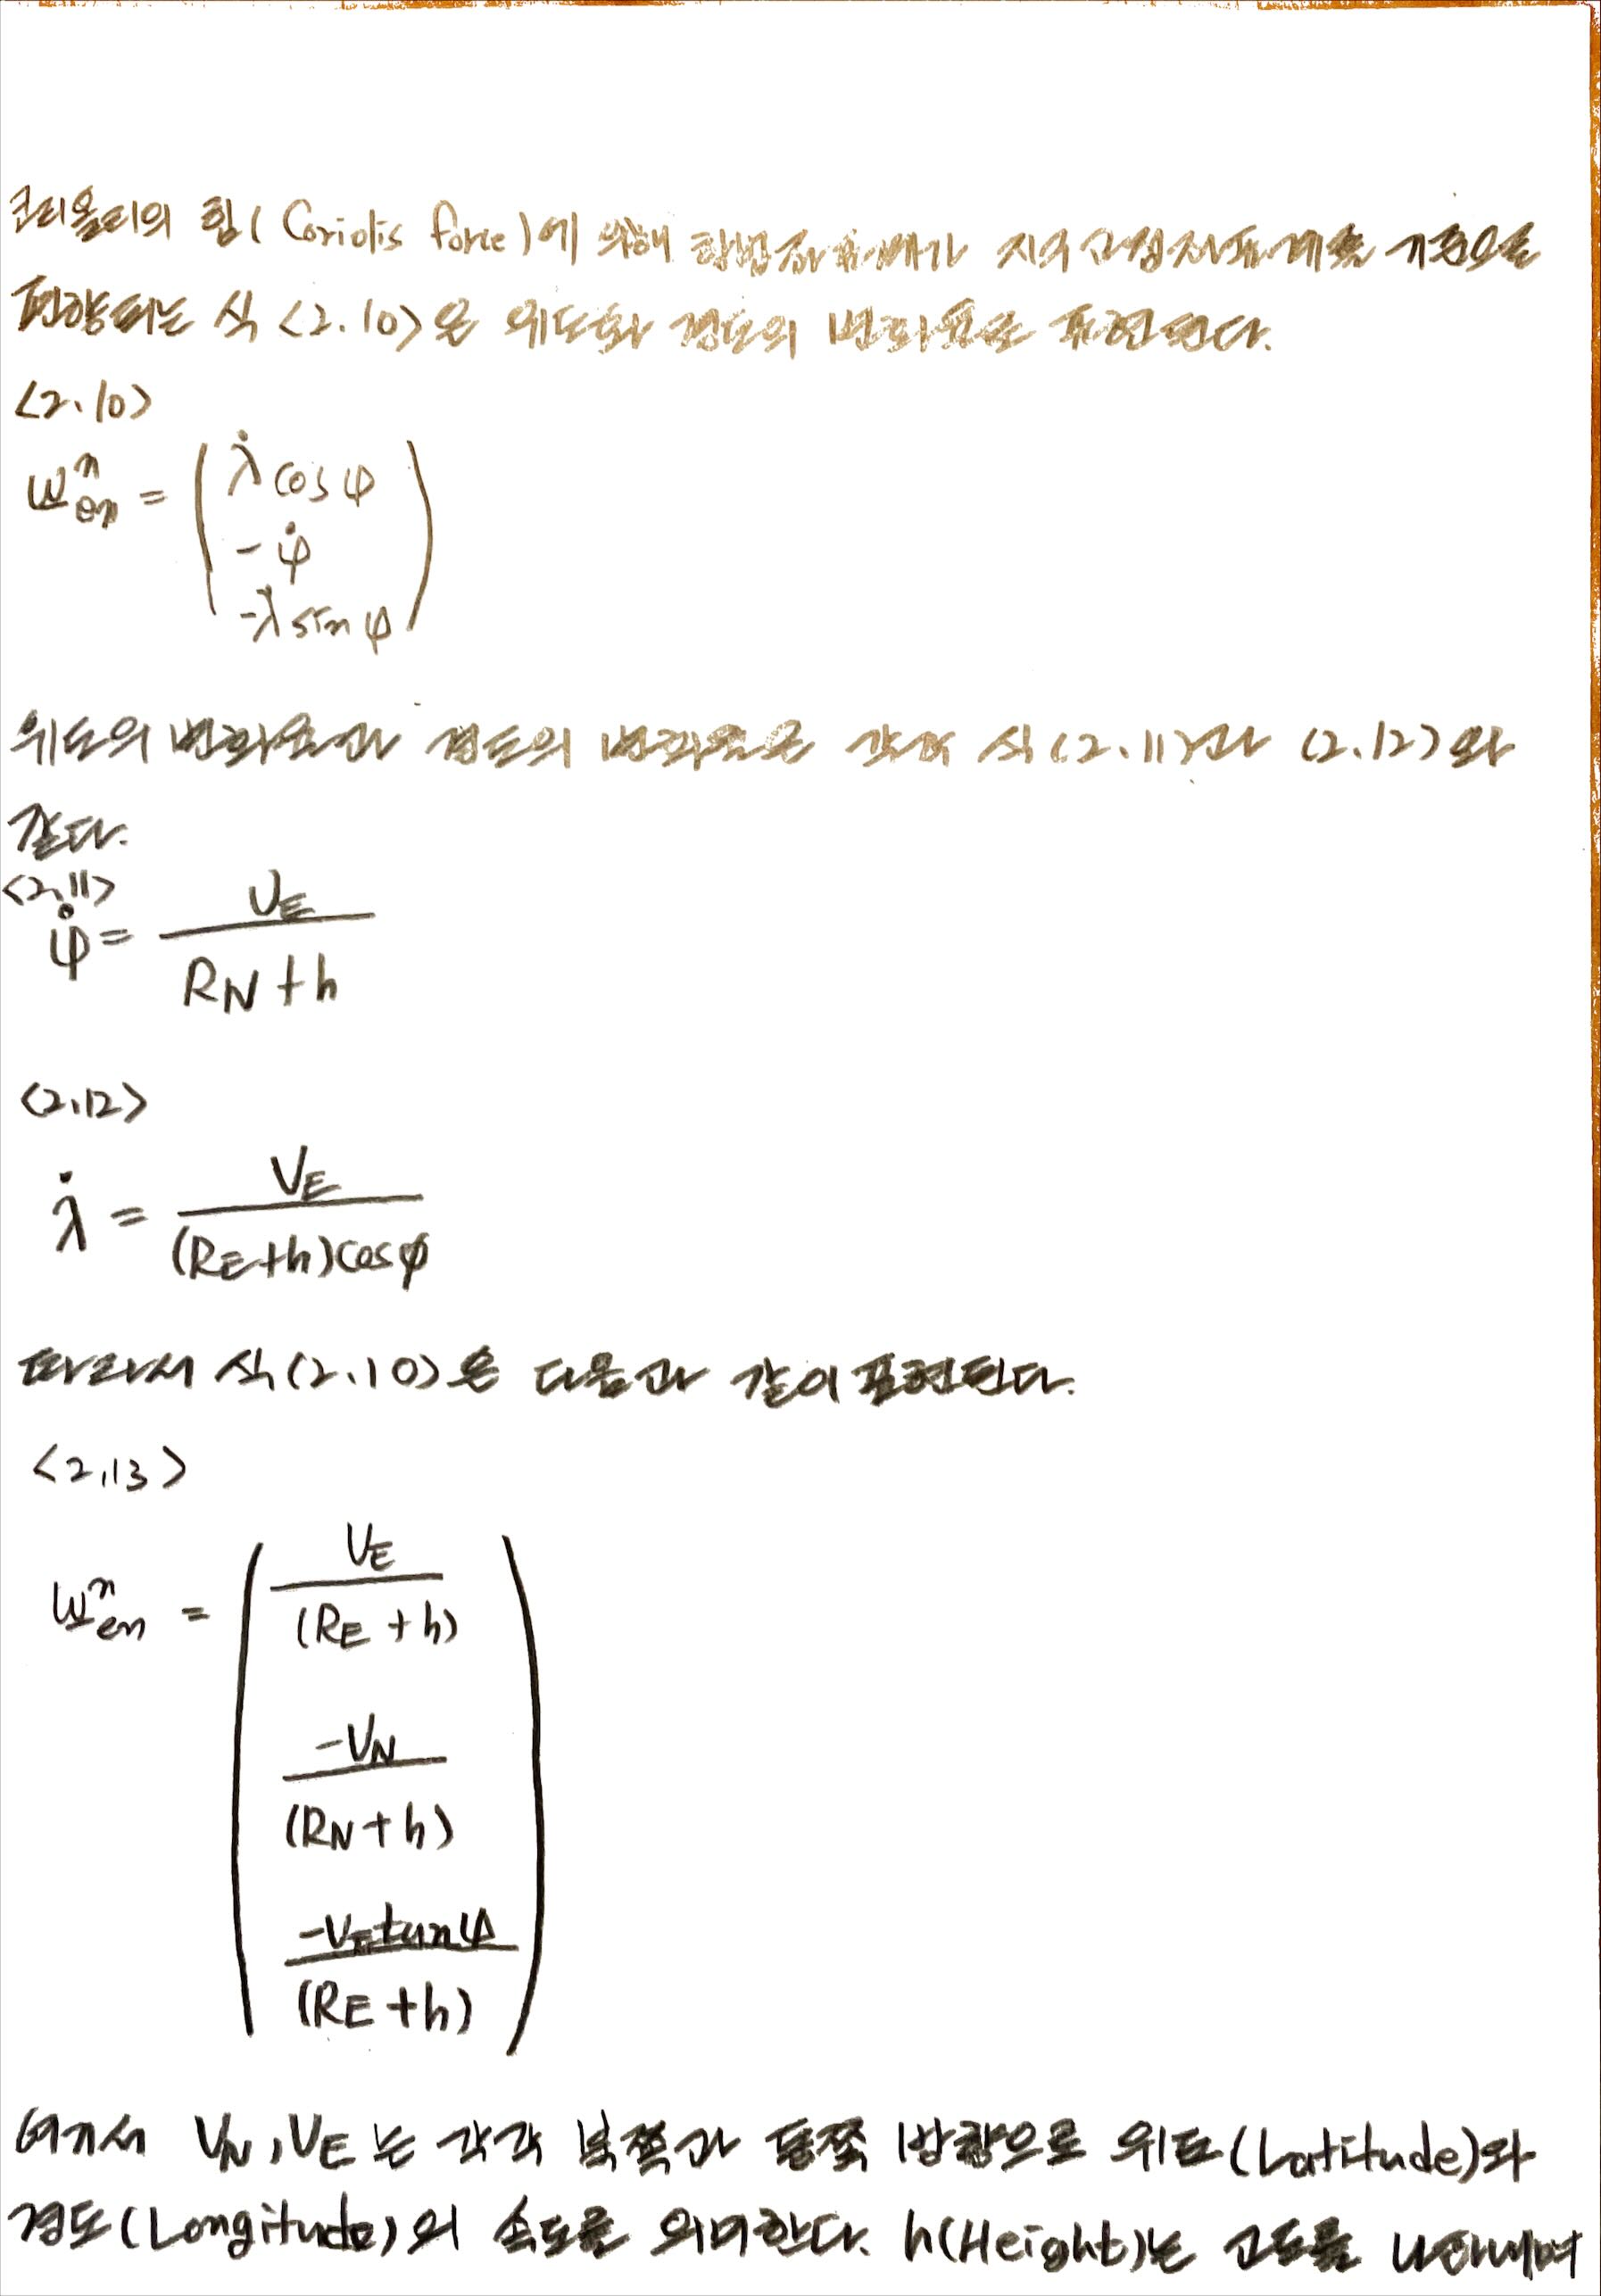 코리올리의 힘(Coriolis force)에 의해 항법좌표계가 지구고정좌표계를 기준으로
편향되는 식 <2.10>은 위도와 경도의 변화율로 표현된다.
<2.10>
ω^n_en = ( λ̇ cos φ
-φ̇
-λ̇ sin φ )
위도의 변화율과 경도의 변화율은 각각 식 (2.11)과 (2.12)와
같다.
<2.11>
φ̇ = V_E / (R_N + h)
<2.12>
λ̇ = V_E / ((R_E+h)cosφ)
따라서 식 (2.10)은 다음과 같이 표현된다.
<2.13>
ω^n_en = ( V_E / (R_E + h)
-V_N / (R_N + h)
-V_E tan φ / (R_E + h) )
여기서 V_N, V_E 는 각각 북쪽과 동쪽 방향으로 위도(Latitude)와
경도(Longitude)의 속도를 의미한다. h(Height)는 고도를 나타내며